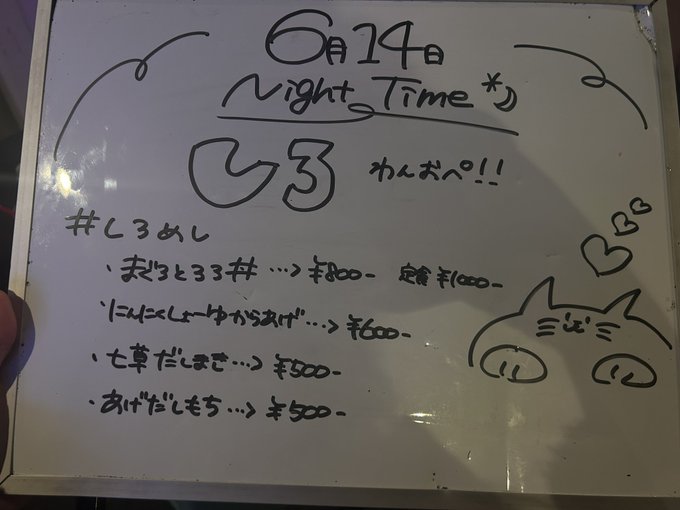 6月14日
Night Time
しろ わんおぺ!!
#しろめし
・まぐろとろろ丼…> ¥800- 定食 ¥1000-
・にんにくしょーゆからあげ…> ¥600-
・七草だしまき…> ¥500-
・あげだしもち…> ¥500-